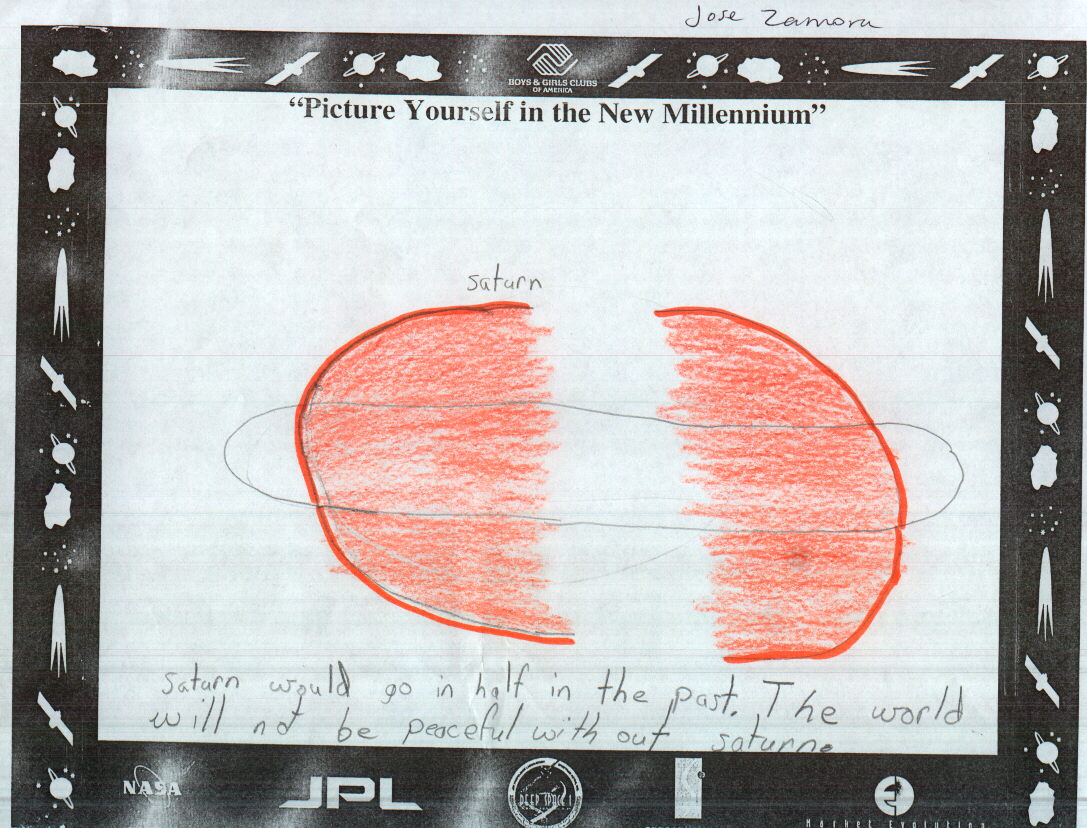 Jose Zamora
BOYS & GIRLS CLUBS
OF AMERICA
“Picture Yourself in the New Millennium”
saturn
Saturn would go in half in the past. The world
will not be peaceful with out saturn.
NASA
JPL
DEEP SPACE 1
Market Evolution